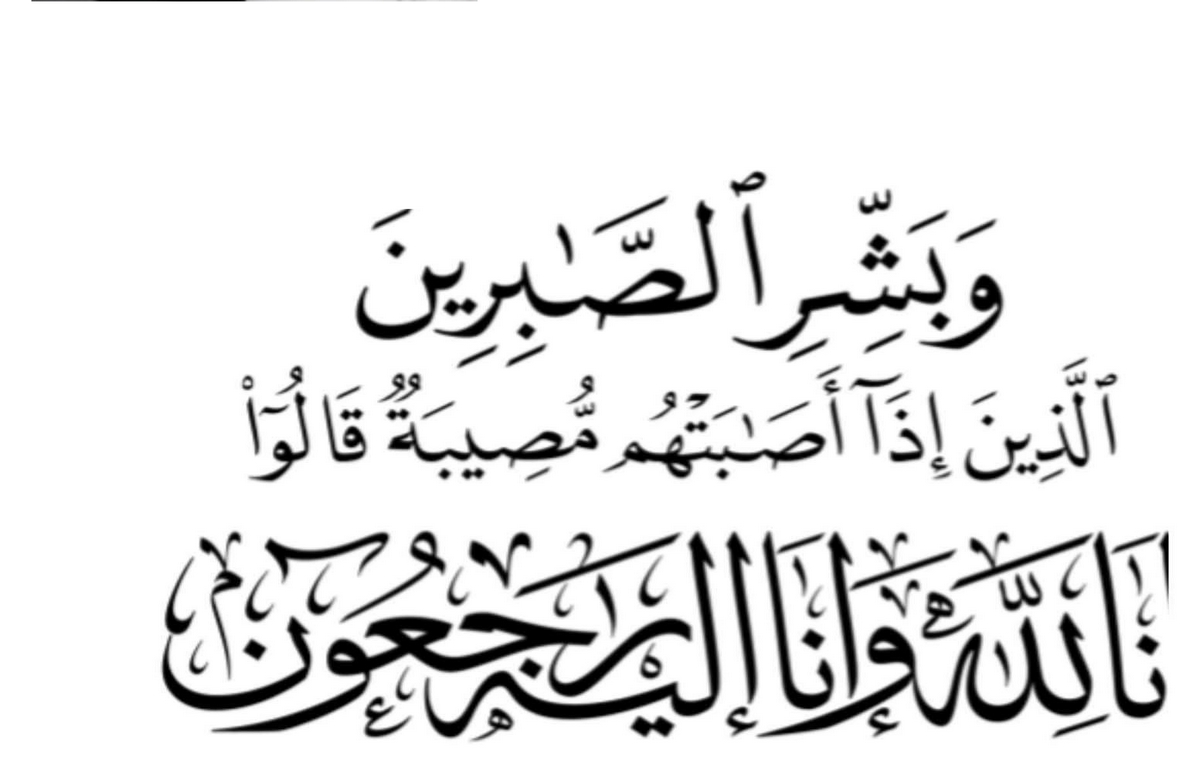 وَبَشِّرِ ٱلصَّٰبِرِينَ
ٱلَّذِينَ إِذَآ أَصَٰبَتۡهُم مُّصِيبَةٌ قَالُوٓاْ
نَا لِلَّهِ وَإِنَّا إِلَيْهِ رَاجِعُونَ